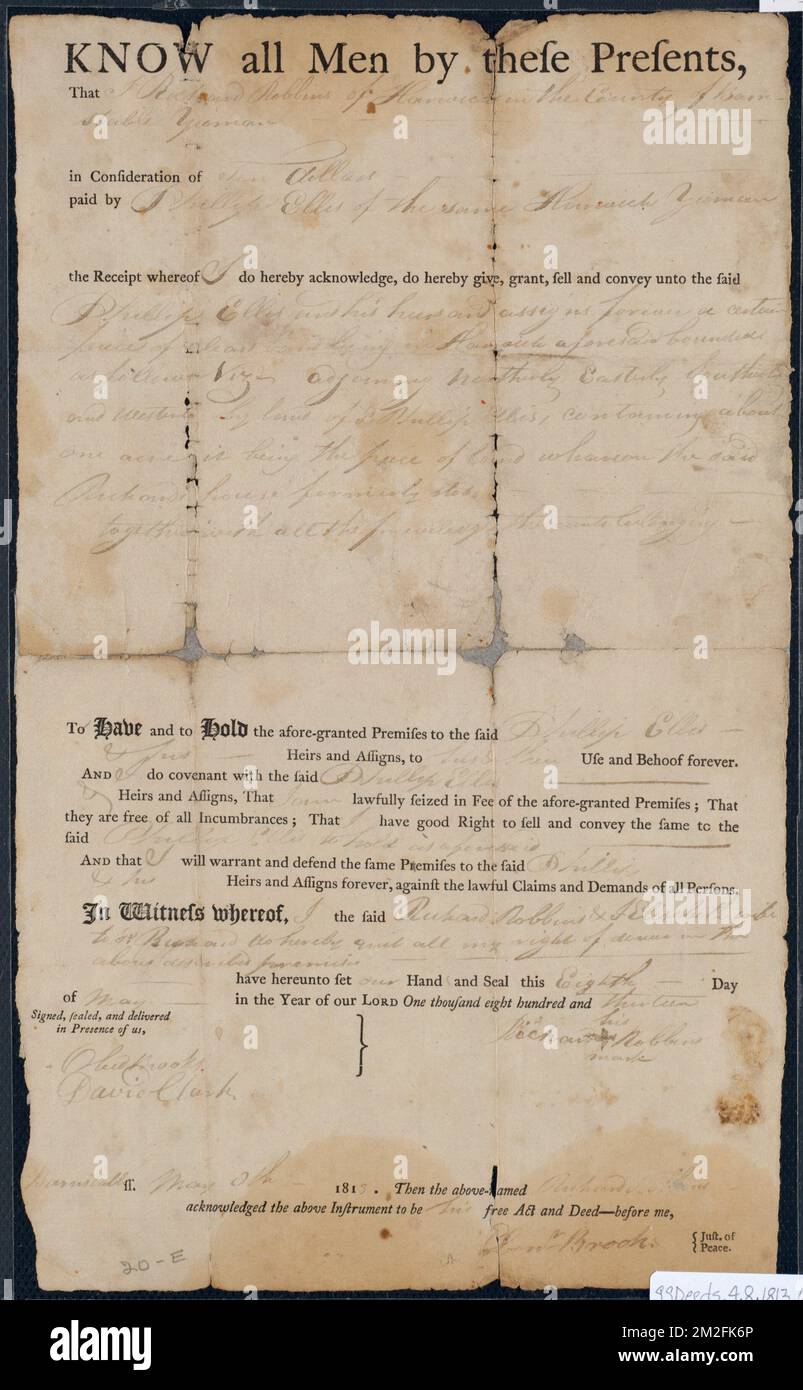 KNOW all Men by theſe Preſents,
That I Richard Robbins of Harwich in the County of Barn-
stable Yeoman
in Conſideration of Dollars
paid by Phillip Ellis of the same Harwich Yeoman
the Receipt whereof I do hereby acknowledge, do hereby give, grant, ſell and convey unto the ſaid
Phillip Ellis and his and assigns a certain
piece of land lying in Harwich aforesaid bounded
as follows Viz adjoining Northerly Easterly
and Westerly by land of Phillip Ellis, containing about
one acre it being the piece of land whareon the said
Richards house formerly
together with all the belonging
To Have and to Hold the afore-granted Premiſes to the ſaid Phillip Ellis
& his Heirs and Aſſigns, to Uſe and Behoof forever.
AND I do covenant with the ſaid Phillip Ellis
& Heirs and Aſſigns, That lawfully ſeized in Fee of the afore-granted Premiſes; That
they are free of all Incumbrances; That I have good Right to ſell and convey the ſame to the
ſaid Phillip Ellis to hold as aforesaid
AND that I will warrant and defend the ſame Premiſes to the ſaid Phillip
& his Heirs and Aſſigns forever, againſt the lawful Claims and Demands of all Perſons.
In Witneſs whereof, I the ſaid Richard Robbins & wife
to Richard do hereby quit all my right of in the
above described premises
have hereunto ſet our Hand and Seal this Eighth Day
of May in the Year of our LORD One thouſand eight hundred and thirteen
Signed, ſealed, and delivered
in Preſence of us,
his
Richard Robbins
mark
Obed Brooks
David Clark
Barnstable ſſ. May 8th 1813. Then the above-named Richard Robbins
acknowledged the above Inſtrument to be his free Act and Deed—before me,
Brooks { Juſt. of
Peace.
20-E
99Deeds.4.8.1813
alamy
alamy
Image ID: 2M2FK6P
www.alamy.com